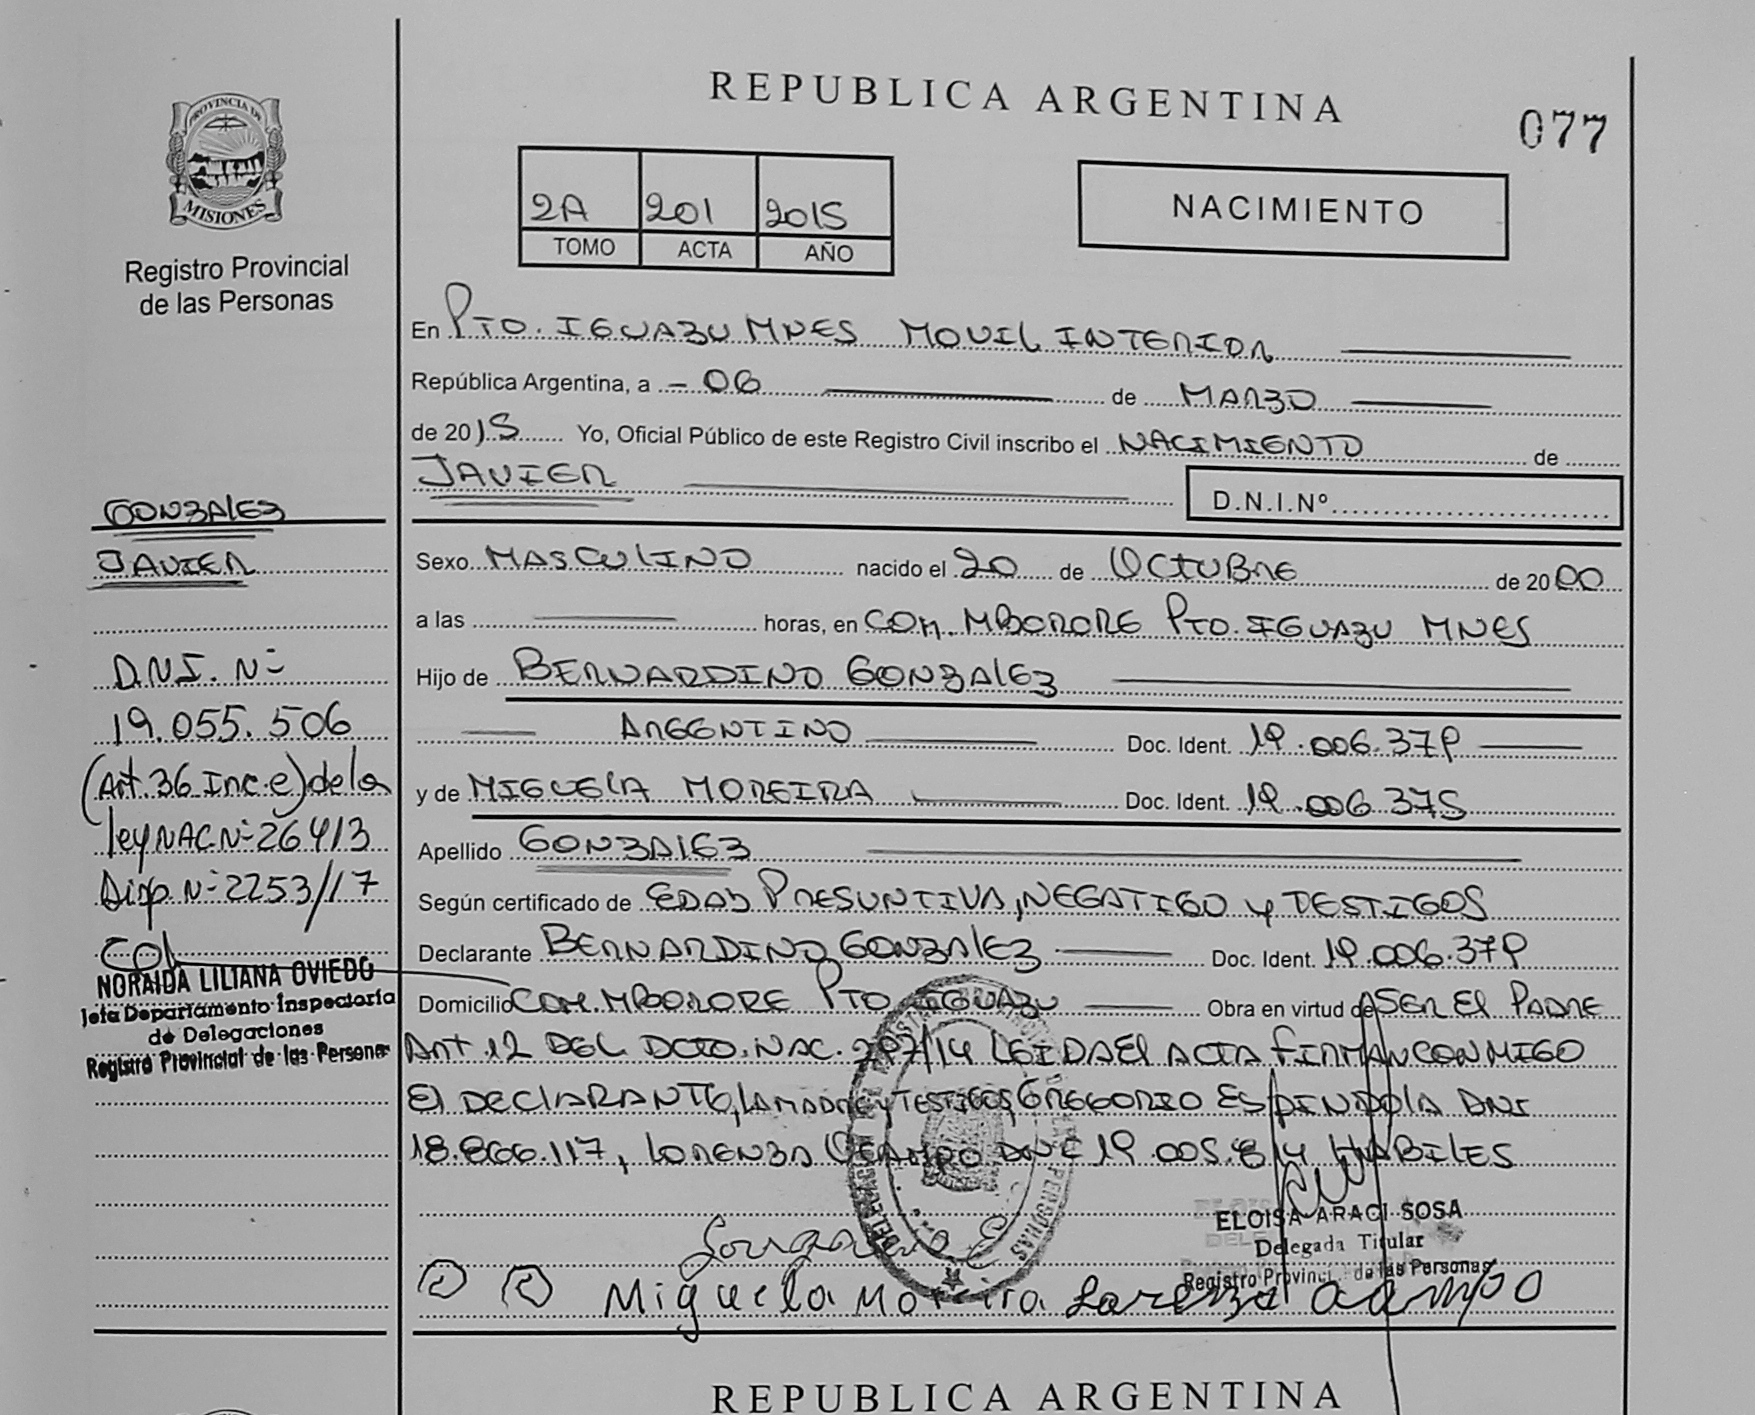 REPUBLICA ARGENTINA
077
PROVINCIA DE
MISIONES
Registro Provincial
de las Personas
2A 201 2015
TOMO ACTA AÑO
NACIMIENTO
En PTO. IGUAZU MNES MOVIL INTERIOR
República Argentina, a - 06 de MARZO
de 2015 Yo, Oficial Público de este Registro Civil inscribo el NACIMIENTO de
JAVIER
D.N.I.Nº
GONZALEZ
JAVIER
D.N.I. Nº
19.055.506
(Art. 36 Inc. e) de la
ley NAC Nº 26413
Disp. Nº 2253/17
NORAIDA LILIANA OVIEDO
Jefa Departamento Inspectoria
de Delegaciones
Registro Provincial de las Personas
Sexo MASCULINO nacido el 20 de OCTUBRE de 2000
a las horas, en COM. MBORORE PTO. IGUAZU MNES
Hijo de BERNARDINO GONZALEZ
ARGENTINO Doc. Ident. 19.006.379
y de MIGUELA MOREIRA Doc. Ident. 19.006.375
Apellido GONZALEZ
Según certificado de EDAD PRESUNTIVA, NEGATIGO Y TESTIGOS
Declarante BERNARDINO GONZALEZ Doc. Ident. 19.006.379
Domicilio COM. MBORORE PTO IGUAZU Obra en virtud de SER EL PADRE
ART 12 DEL DCTO. NAC. 297/14 LEIDA EL ACTA FIRMAN CONMIGO
El DECLARANTE, LA MADRE Y TESTIGOS, GREGORIO ESPINDOLA DNI
18.866.117, LORENZA OCAMPO DNI 19.005.814 HABILES
ELOISA ARACI SOSA
Delegada Titular
Registro Provincial de las Personas
Miguela Moreira Lorenza Ocampo
REPUBLICA ARGENTINA